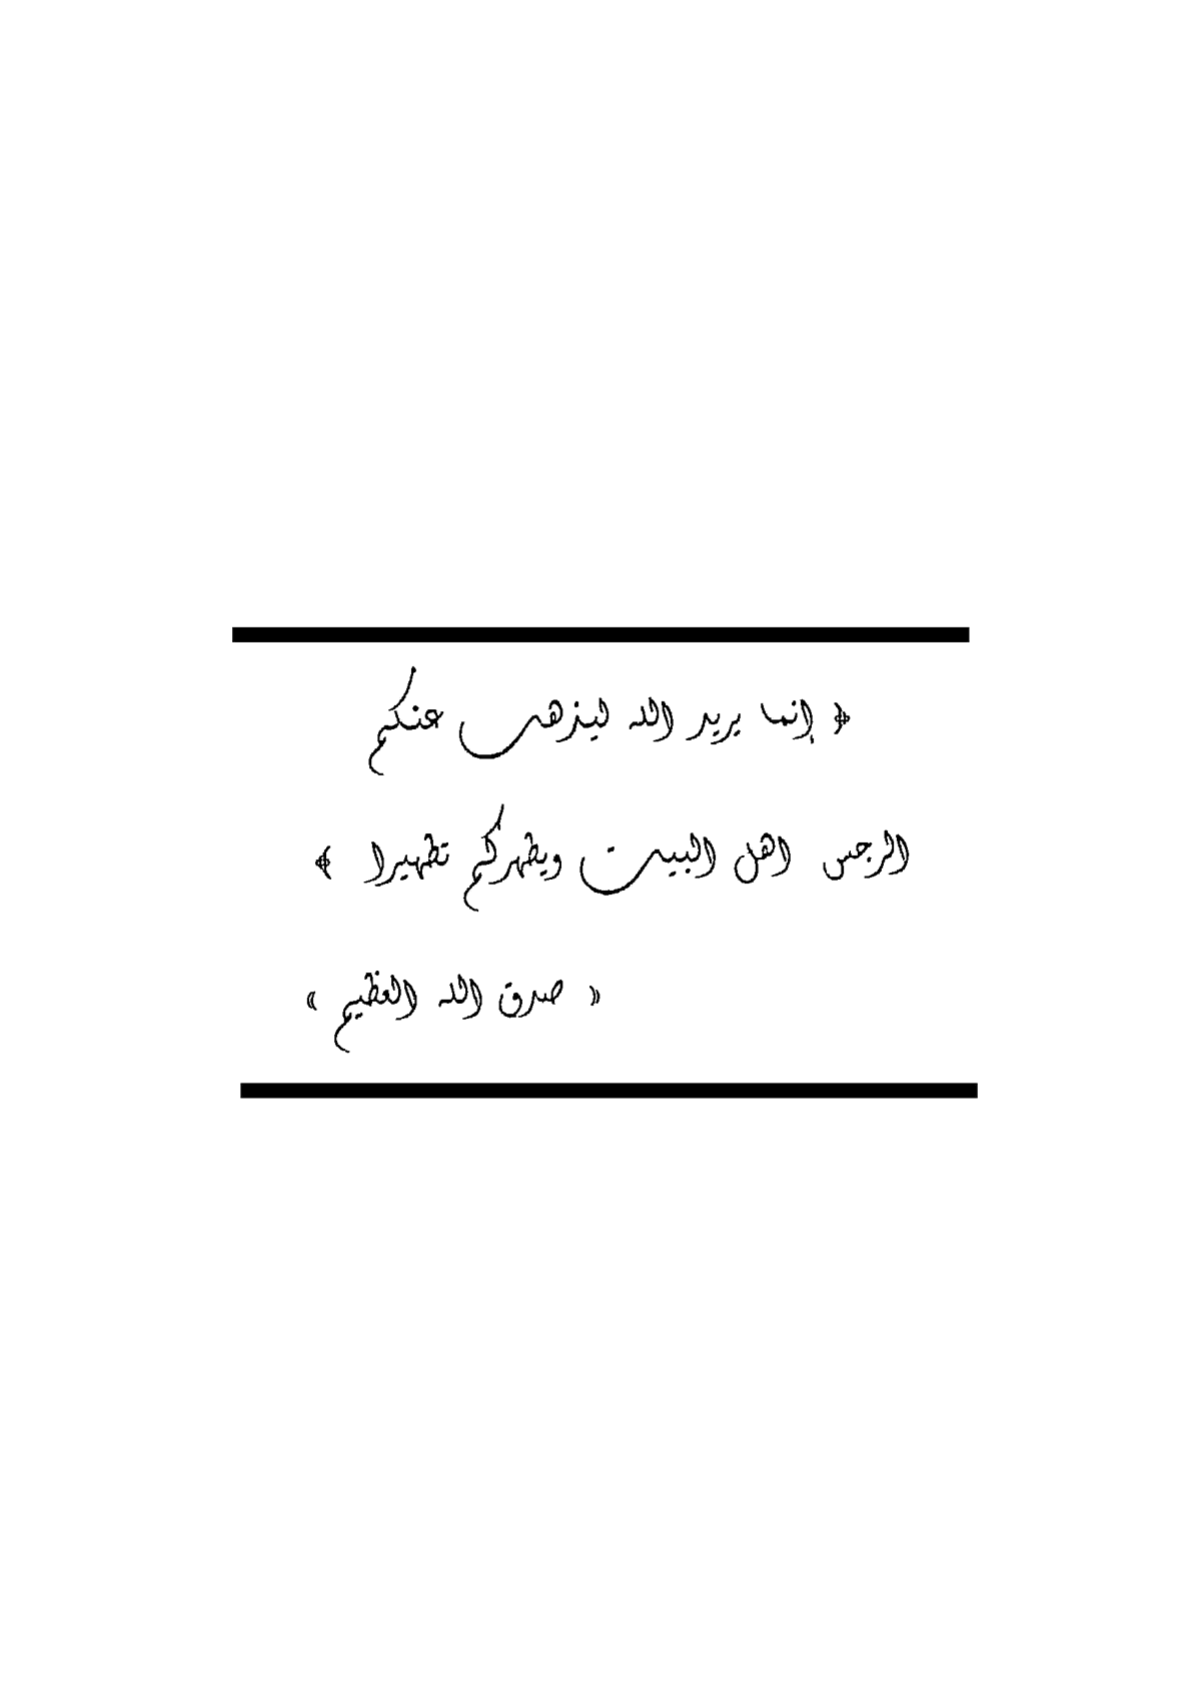 ﴿ إنما يريد الله ليذهب عنكم
الرجس اهل البيت ويطهركم تطهيرا ﴾
« صدق الله العظيم »